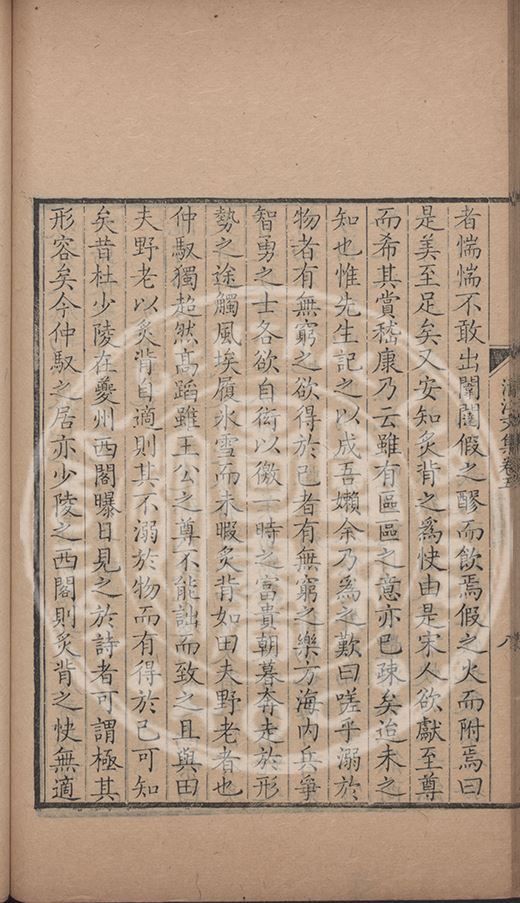 者惴惴不敢出闤闠假之醪而飲焉假之火而附焉曰
是美至足矣又安知炙背之爲快由是宋人欲獻至尊
而希其賞嵇康乃云雖有區區之意亦已疎矣迨未之
知也惟先生記之以成吾嬾余乃爲之歎曰嗟乎溺於
物者有無窮之欲得於己者有無窮之樂方海内兵爭
智勇之士各欲自衒以徼一時之富貴朝暮奔走於形
勢之途觸風埃履氷雪而未暇炙背如田夫野老者也
仲馭獨超然高蹈雖王公之尊不能詘而致之且與田
夫野老以炙背自適則其不溺於物而有得於己可知
矣昔杜少陵在夔州西閣曝日見之於詩者可謂極其
形容矣今仲馭之居亦少陵之西閣則炙背之快無適
文集卷五
八